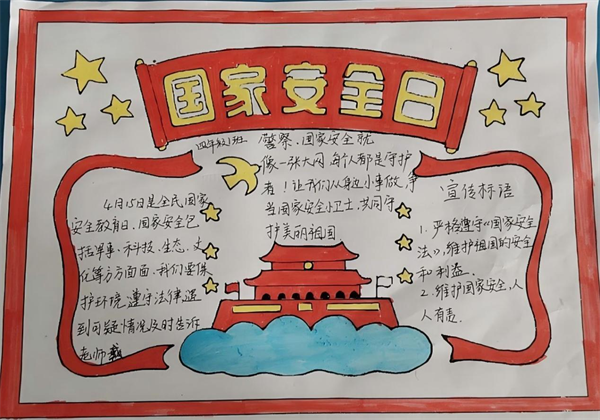 国家安全日
四年级1班
4月15日是全民国家
安全教育日,国家安全包
括军事、科技、生态、文
化等方方面面,我们要保
护环境,遵守法律,遇
到可疑情况及时告诉
老师
警察,国家安全就
像一张大网,每个人都是守护
者!让我们从身边小事做,争
当国家安全小卫士,共同守
护美丽祖国
宣传标语
1、严格遵守《国家安全
法》,维护祖国的安全
和利益.
2、维护国家安全,人
人有责.